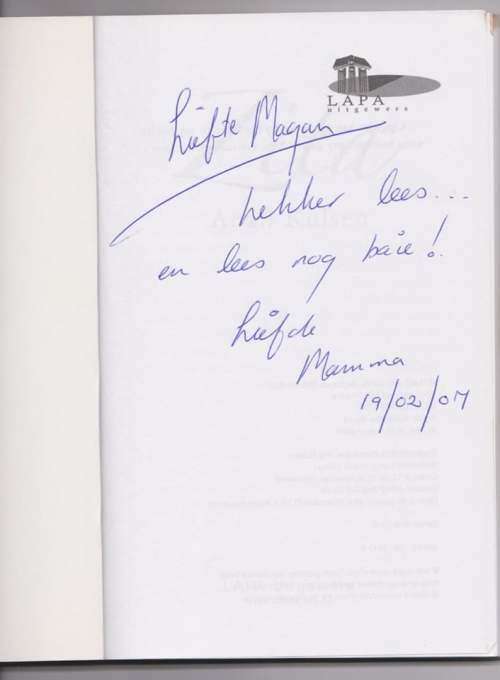 LAPA
uitgewers
Liefste Magan
Lekker lees...
en lees nog baie!
Liefde
Mamma
19/02/07